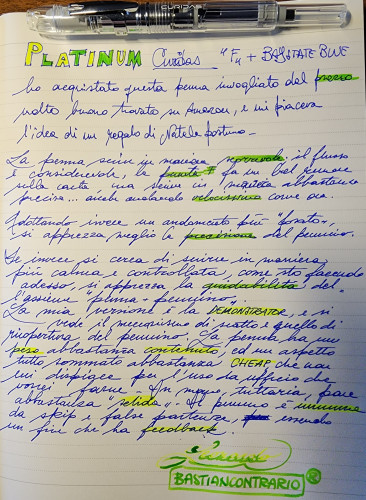 CURIDAS
PLATINUM Curidas - "F" + BAYSTATE BLUE
ho acquistato questa penna invogliato dal prezzo
molto buono trovato su Amazon, e mi piaceva
l'idea di un regalo di Natale postumo -
La penna scrive in maniera scorrevole: il flusso
è considerevole, la punta F fa un bel rumore
sulla carta, ma scrive in maniera abbastanza
precisa... anche andando velocissimo come ora.
Adottando invece un andamento più "posato",
si apprezza meglio la precisione del pennino.
Se invece si cerca di scrivere in maniera
più calma e controllata, come sto facendo
adesso, si apprezza la guidabilità del-
l'assieme "penna + pennino".
La mia versione è la DEMONSTRATOR, e si
vede il meccanismo di scatto e quello di
ricopertura del pennino. La penna ha un
peso abbastanza contenuto, ed un aspetto
tutto sommato abbastanza CHEAP che non
mi dispiace per l'uso da ufficio che
vorrei farne. In mano, tuttavia, pare
abbastanza "solida". Il pennino è immune
da skip e false partenze, essendo
un fine che ha feedback.
BASTIANCONTRARIO ®